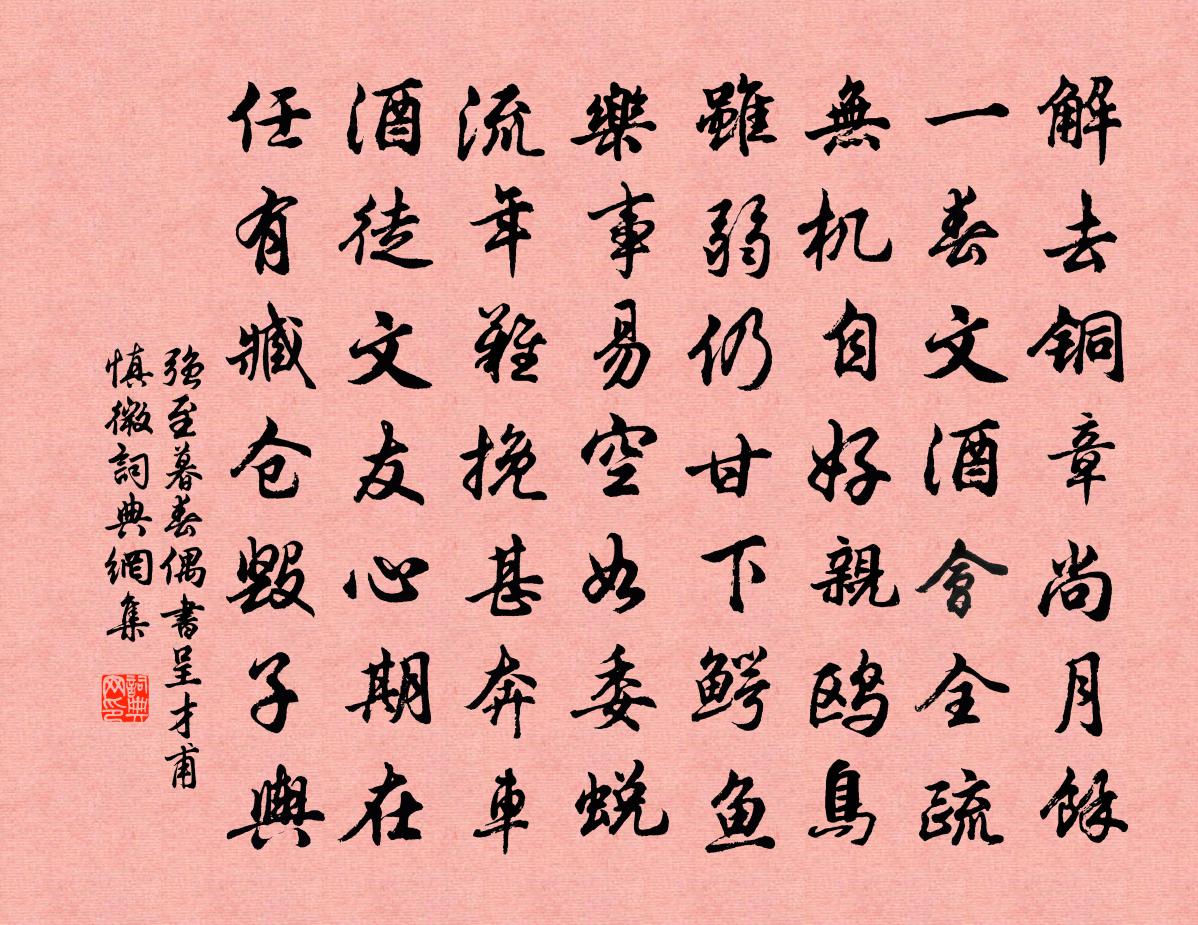 解去铜章尚月馀
一春文酒会全疏
無机自好親鸥鳥
雖弱仍甘下鳄鱼
樂事易空如委蜕
流年難挽甚奔車
酒徒文友心期在
任有臧仓毁子輿
强至暮春偶書呈才甫
慎微詞典網集
詞典网印